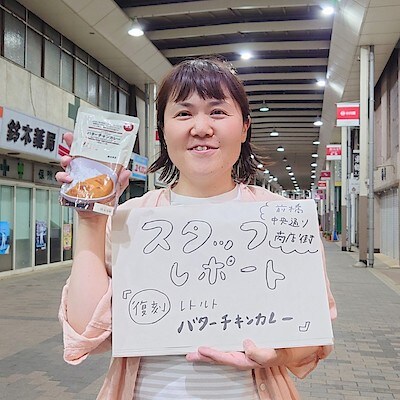 鈴木薬局
バターチキンカレー
前橋
中央通り
商店街
スタッフ
レポート
『復刻 レトルト
バターチキンカレー』